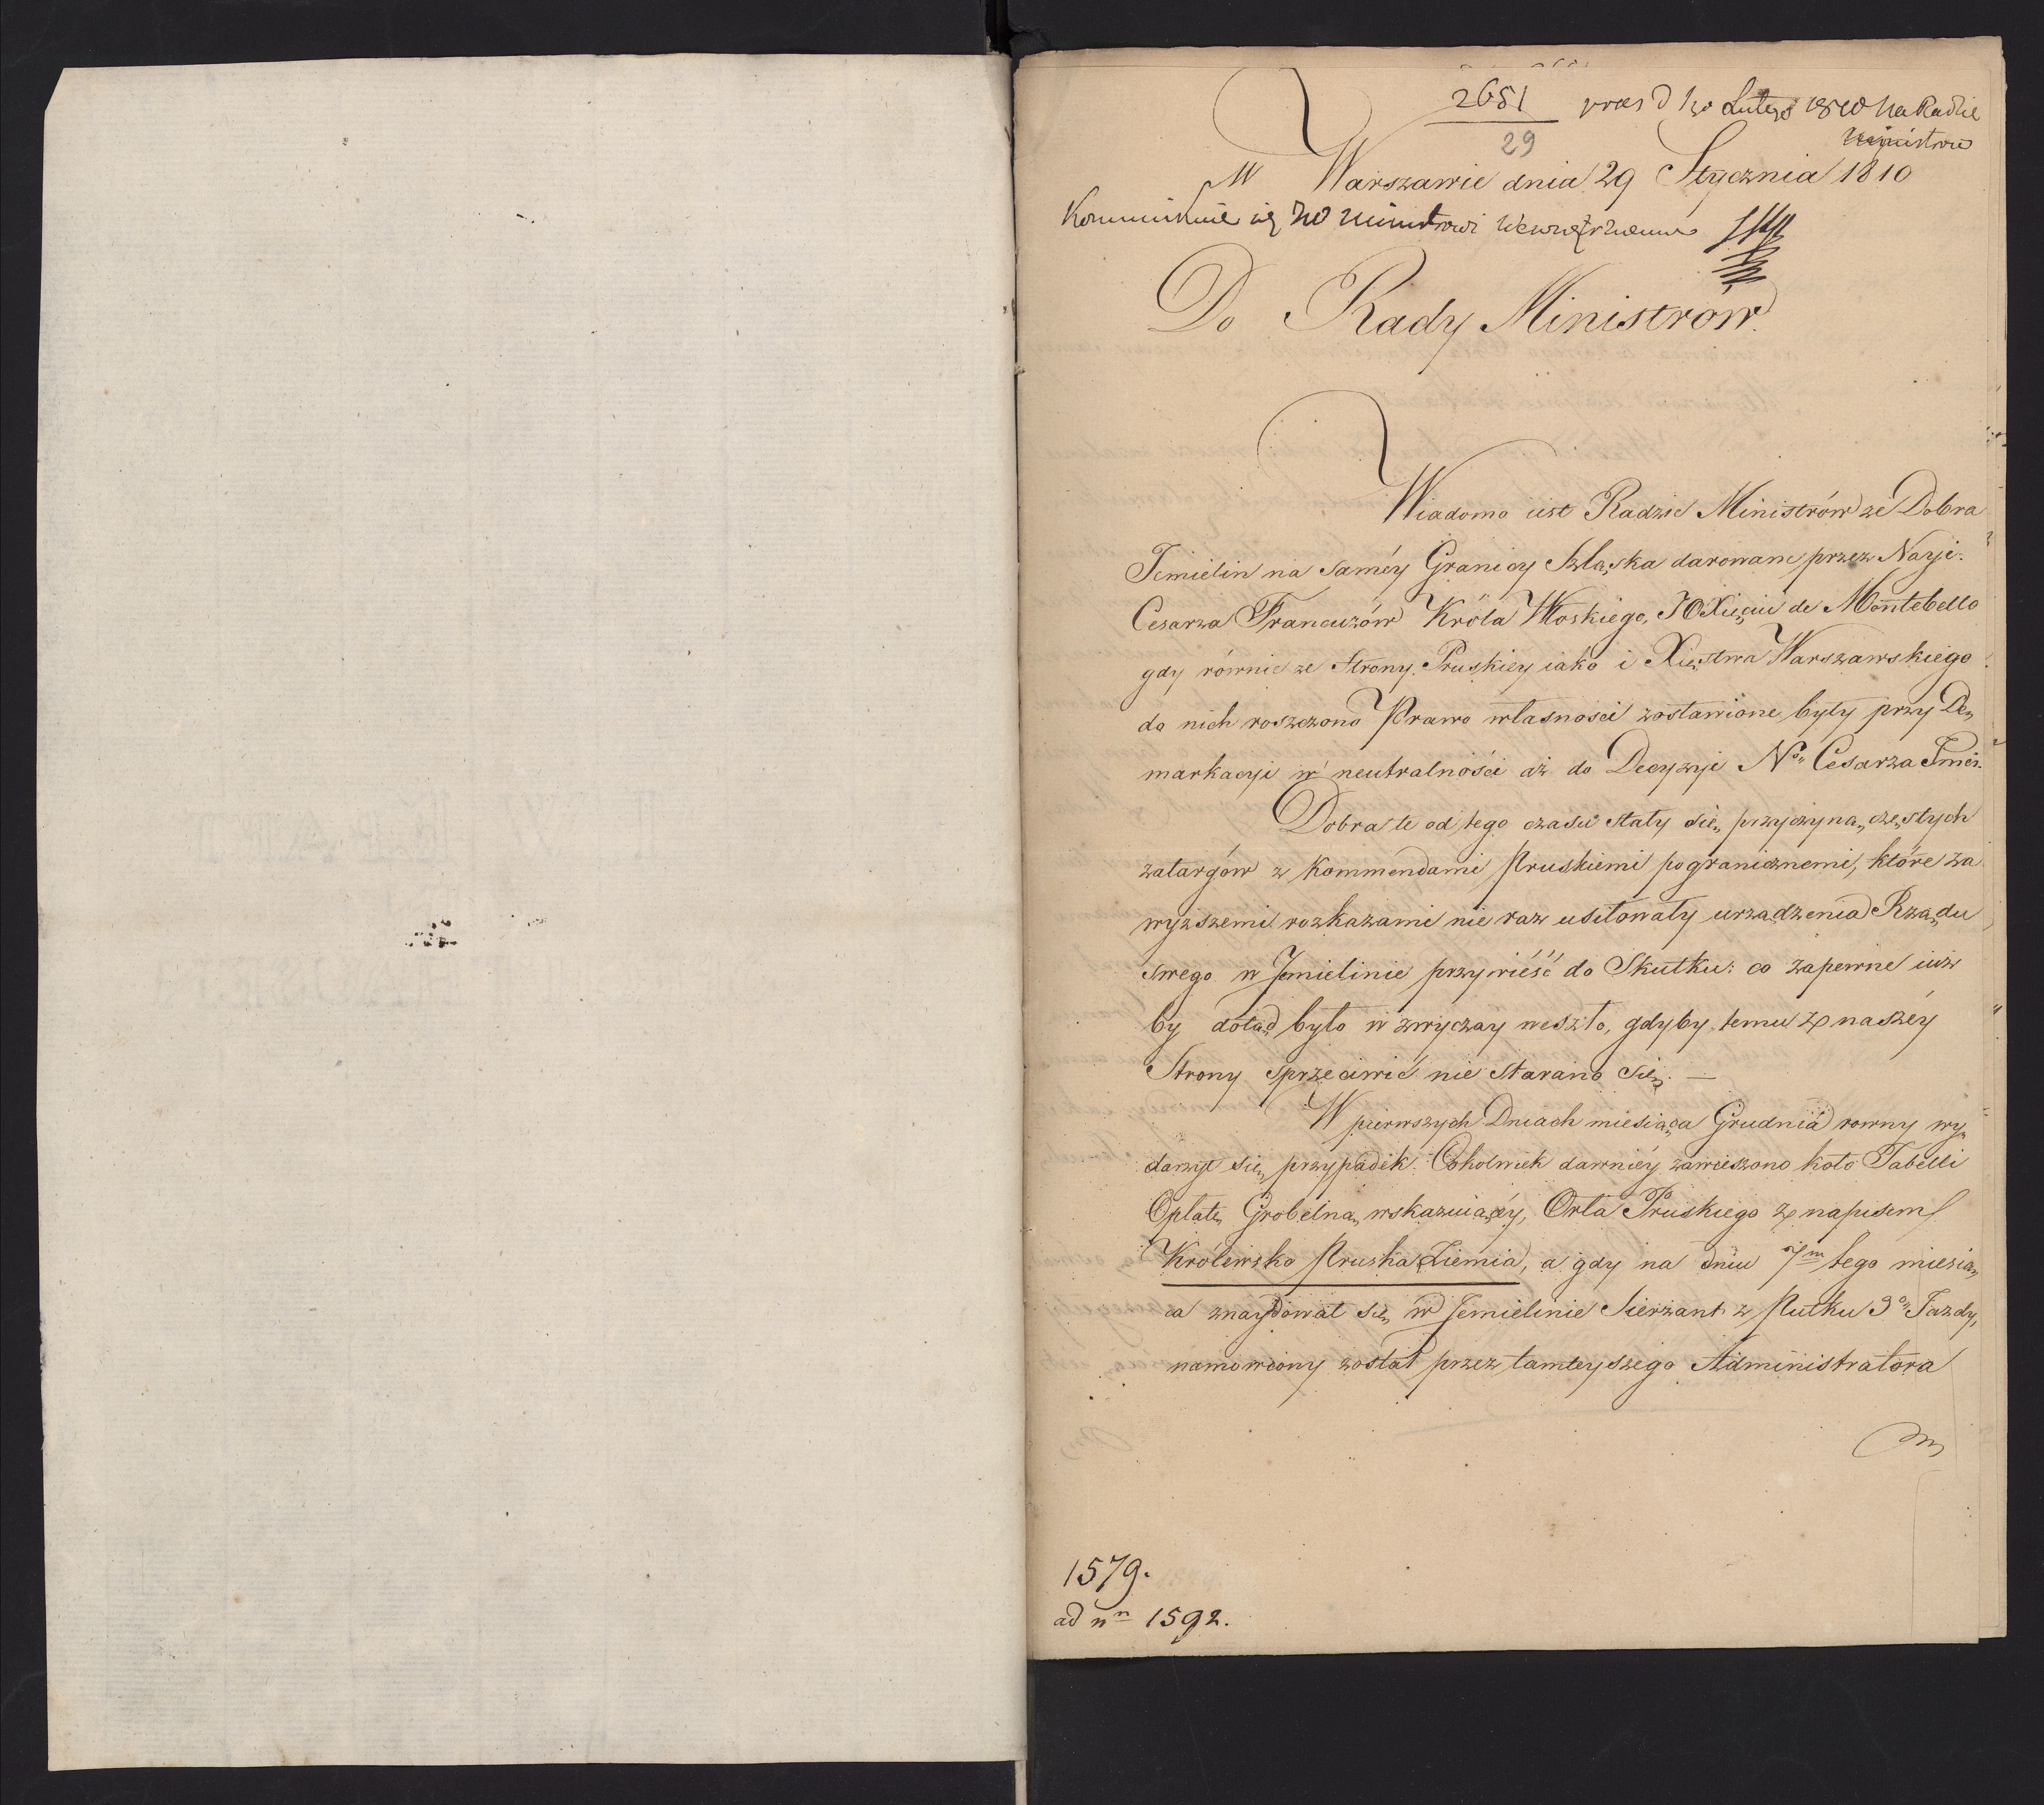 2651
29
praes d 1go Lutego 1810 na Radzie
Ministrów
W Warszawie dnia 29 Stycznia 1810
Kommunikuie się JW Ministrowi Wewnętrznemu
Do Rady Ministrów.
Wiadomo iest Radzie Ministrów że Dobra
Jemielin na saméy Granicy Szląska darowane przez Nayj.
Cesarza Francuzów Króla Włoskiego, JO Xięciu de Montebello
gdy równie ze strony Pruskiey iako i Xięstwa Warszawskiego
do nich roszczono Prawo własności zostawione były przy De„
markacyi w neutralności aż do Decyzyi No„ Cesarza Jmci.
Dobra te od tego czasu stały się przyczyną częstych
zatargów z Kommendami Pruskiemi pogranicznemi, które za
wyższemi rozkazami nie raz usiłowały urządzenia Rządu
swego w Jemielinie przywieść do Skutku: co zapewne iuż
by dotąd było w zwyczay weszło, gdyby temu z naszéy
Strony sprzeciwić nie starano się. —
W pierwszych Dniach miesiąca Grudnia nowy wy„
darzył się przypadek. Cokolwiek dawniéy zawieszono koło Tabelli
Opłatę Grobelną wskazuiącéy, Orła Pruskiego z napisem
Królewsko Pruska Ziemia, a gdy na dniu 7m tego miesią„
ca znaydował się w Jemielinie Sierżant z Pułku 3o Jazdy,
namówiony został przez tamteyszego Administratora
1579.
ad nn 1592.